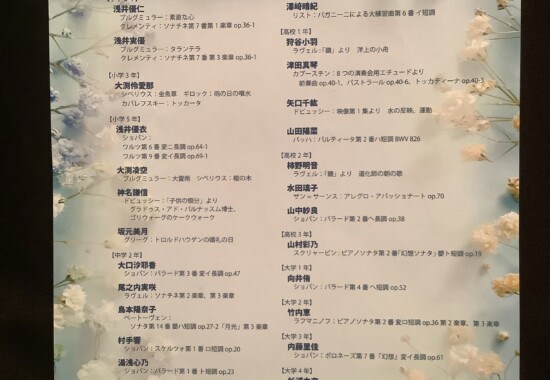 浅井優仁
ブルグミュラー：素直な心
クレメンティ：ソナチネ第7番第1楽章 op.36-1
浅井実優
ブルグミュラー：タランテラ
クレメンティ：ソナチネ第7番第3楽章 op.36-1
【小学3年】
大渕伶愛那
シベリウス：金魚草　ギロック：雨の日の噴水
カバレフスキー：トッカータ
【小学5年】
浅井優衣
ショパン：
ワルツ第6番 変ニ長調 op.64-1
ワルツ第9番 変イ長調 op.69-1
大渕凌空
ブルグミュラー：大雷雨　シベリウス：樅の木
神名謙信
ドビュッシー：「子供の領分」より
グラドゥス・アド・パルナッスム博士、
ゴリウォーグのケークウォーク
坂元美月
グリーグ：トロルドハウゲンの婚礼の日
【中学2年】
大口汐耶香
ショパン：バラード第3番 変イ長調 op.47
尾之内実咲
ラヴェル：ソナチネ第2楽章、第3楽章
島本陽奈子
ベートーヴェン：
ソナタ第14番 嬰ハ短調 op.27-2「月光」第3楽章
村手響
ショパン：スケルツォ第1番 ロ短調 op.20
湯浅心乃
ショパン：バラード第1番 ト短調 op.23
澤﨑晴紀
リスト：パガニーニによる大練習曲第6番 イ短調
【高校1年】
狩谷小羽
ラヴェル：「鏡」より　洋上の小舟
津田真琴
カプースチン：8つの演奏会用エチュードより
前奏曲 op.40-1、パストラール op.40-6、トッカティーナ op.40-3
矢口千紘
ドビュッシー：映像第1集より　水の反映、運動
山田陽菜
バッハ：パルティータ第2番ハ短調 BWV 826
【高校2年】
柿野明音
ラヴェル：「鏡」より　道化師の朝の歌
水田璃子
サン＝サーンス：アレグロ・アパッショナート op.70
山中紗良
ショパン：バラード第2番 ヘ長調 op.38
【高校3年】
山村彩乃
スクリャービン：ピアノソナタ第2番「幻想ソナタ」嬰ト短調 op.19
【大学1年】
向井侑
ショパン：バラード第4番 ヘ短調 op.52
【大学2年】
竹内恵
ラフマニノフ：ピアノソナタ第2番 変ロ短調 op.36 第2楽章、第3楽章
【大学3年】
内藤里佳
ショパン：ポロネーズ第7番「幻想」変イ長調 op.61
【大学4年】